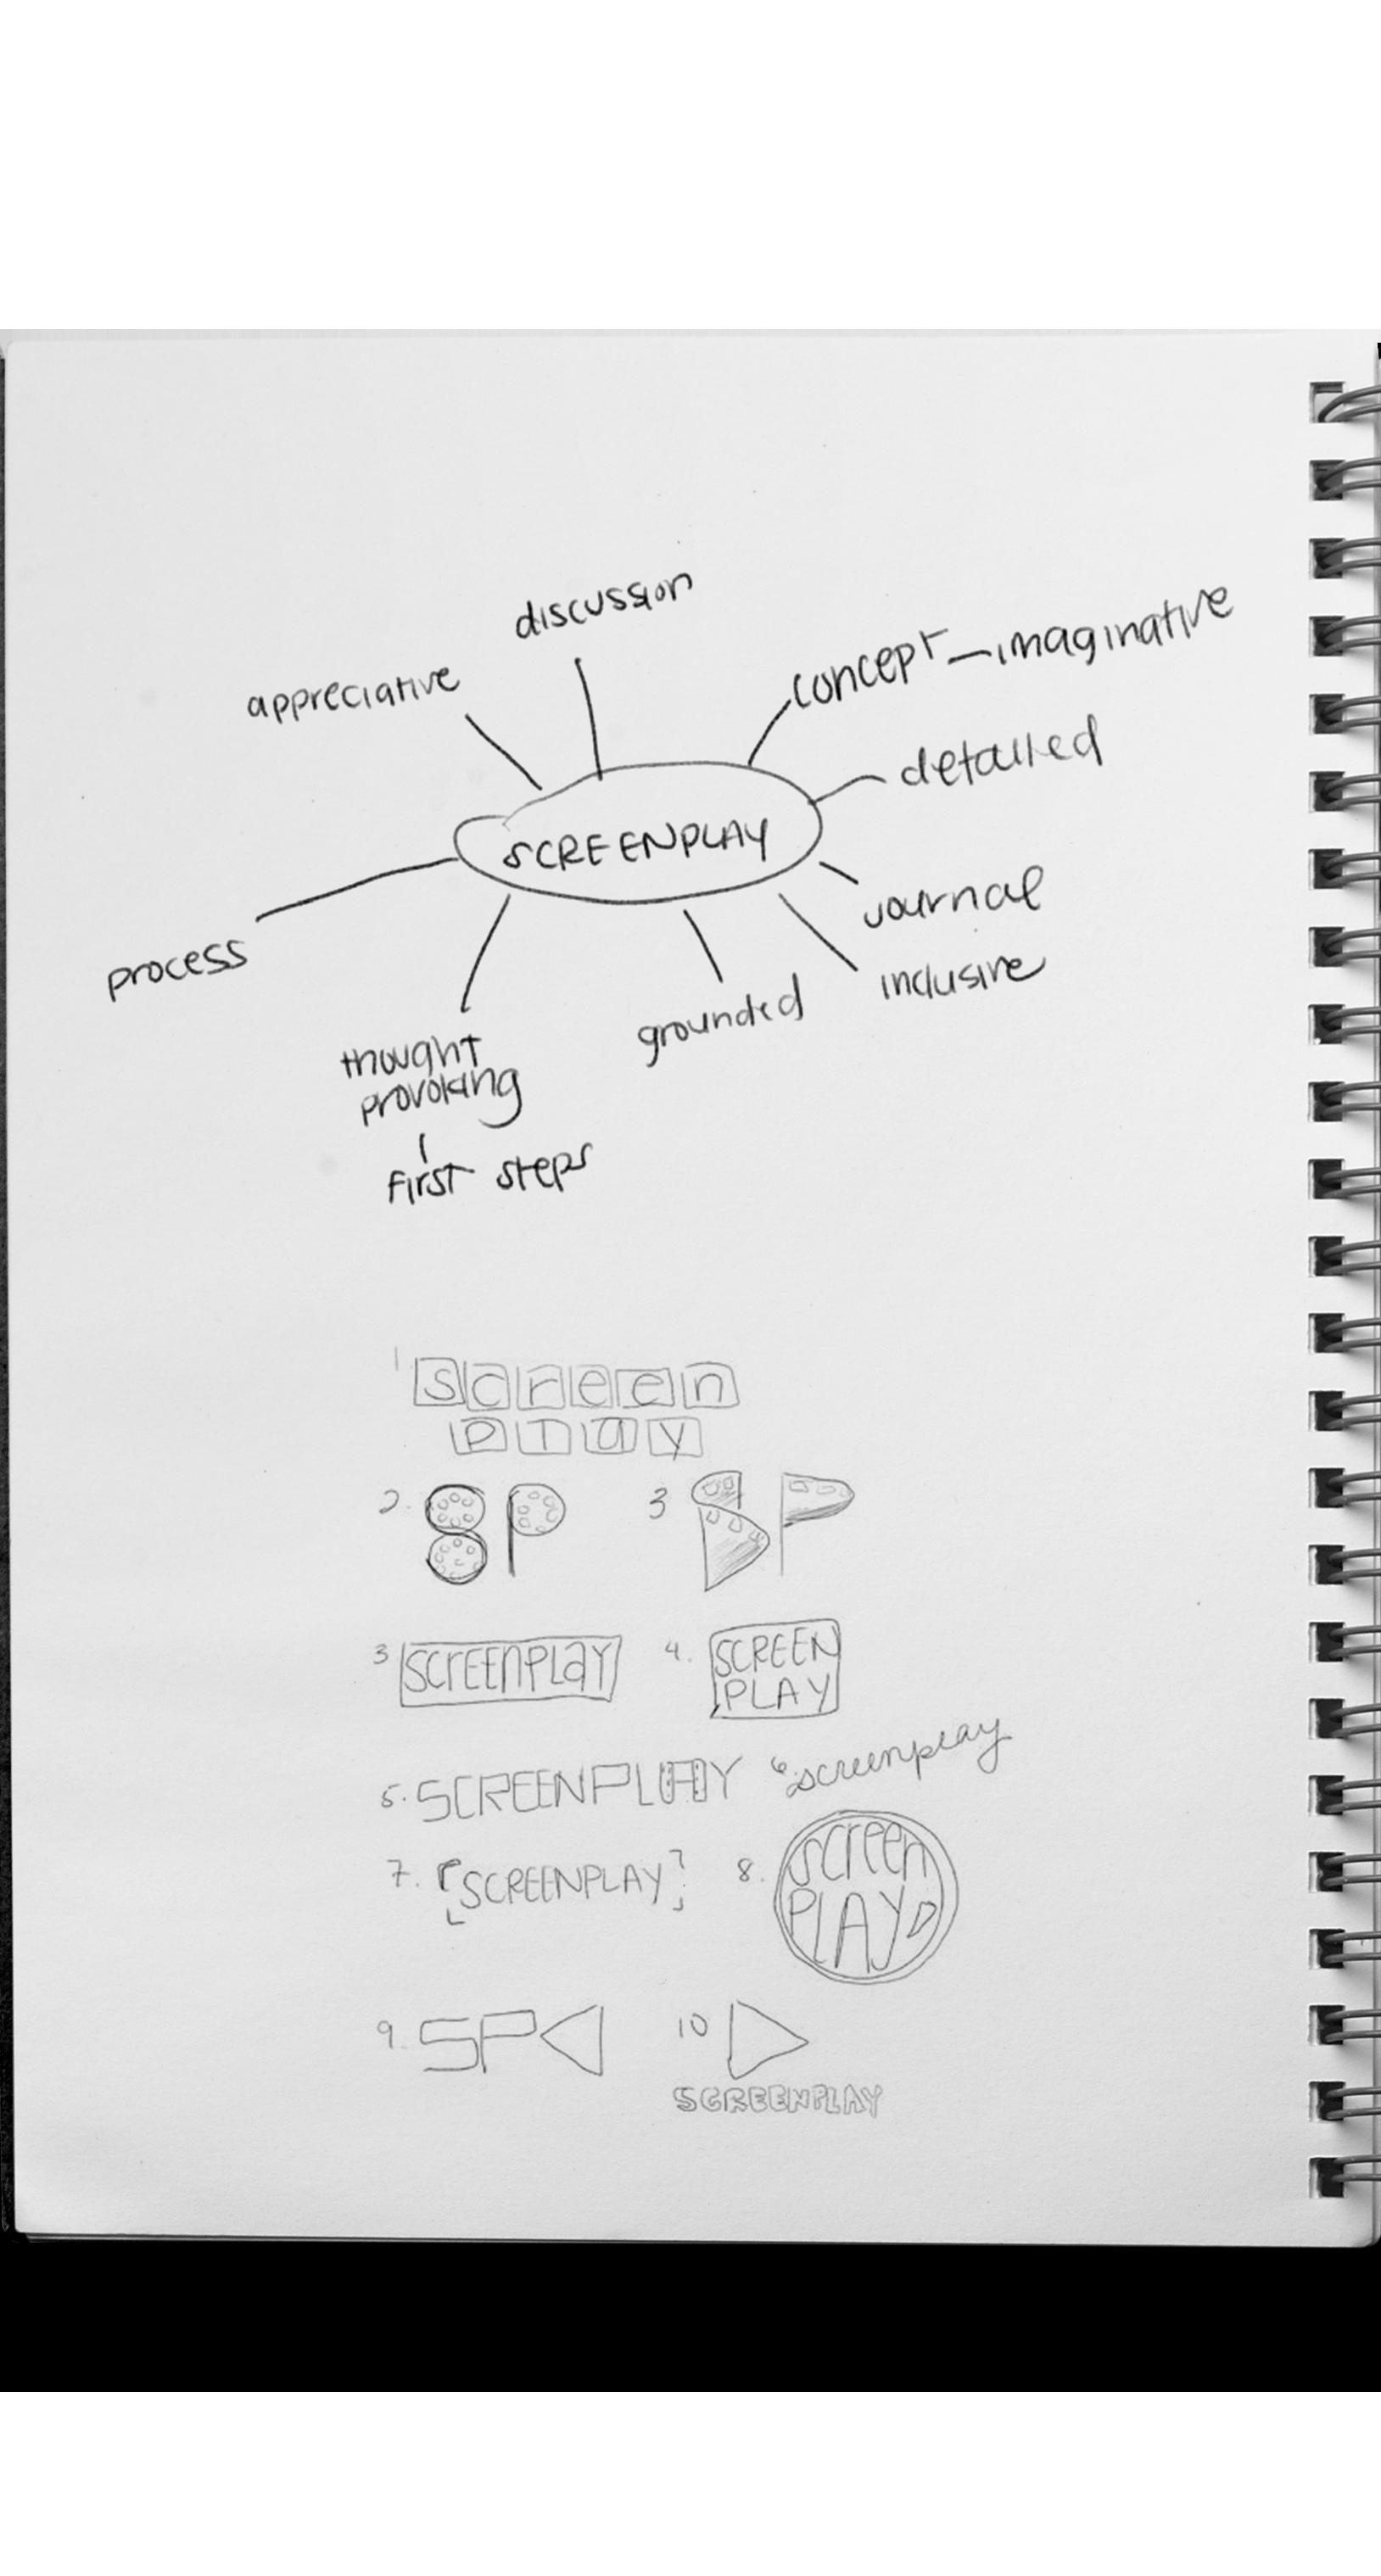 discussion
appreciative
concept - imaginative
detailed
SCREENPLAY
journal
inclusive
process
grounded
thought
provoking
first steps
1. screen
play
2. SP 3 SP
3 SCREENPLAY 4. SCREEN
PLAY
5. SCREENPLAY 6. screenplay
7. [SCREENPLAY] 8. screen
PLAY
9. SP 10
SCREENPLAY